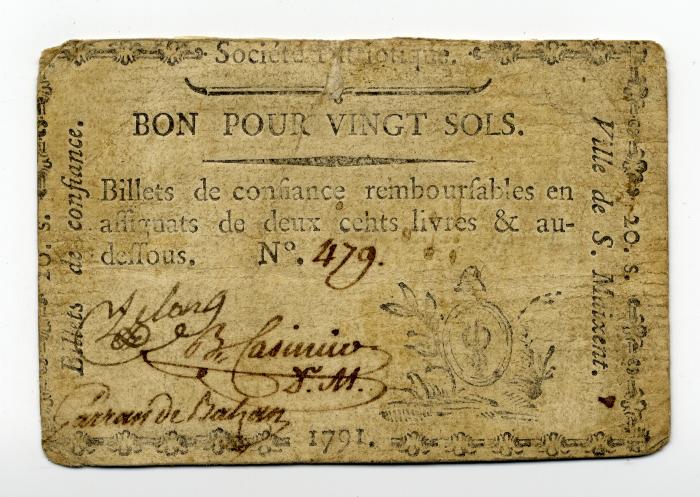 Société Patriotique.
BON POUR VINGT SOLS.
Billets de confiance.
20. s.
Billets de confiance rembourſables en
aſſignats de deux cents livres & au-
deſſous. N°. 479.
Ville de S. Maixent.
20. s.
B. Casimir
Garran de Balzan
1791.